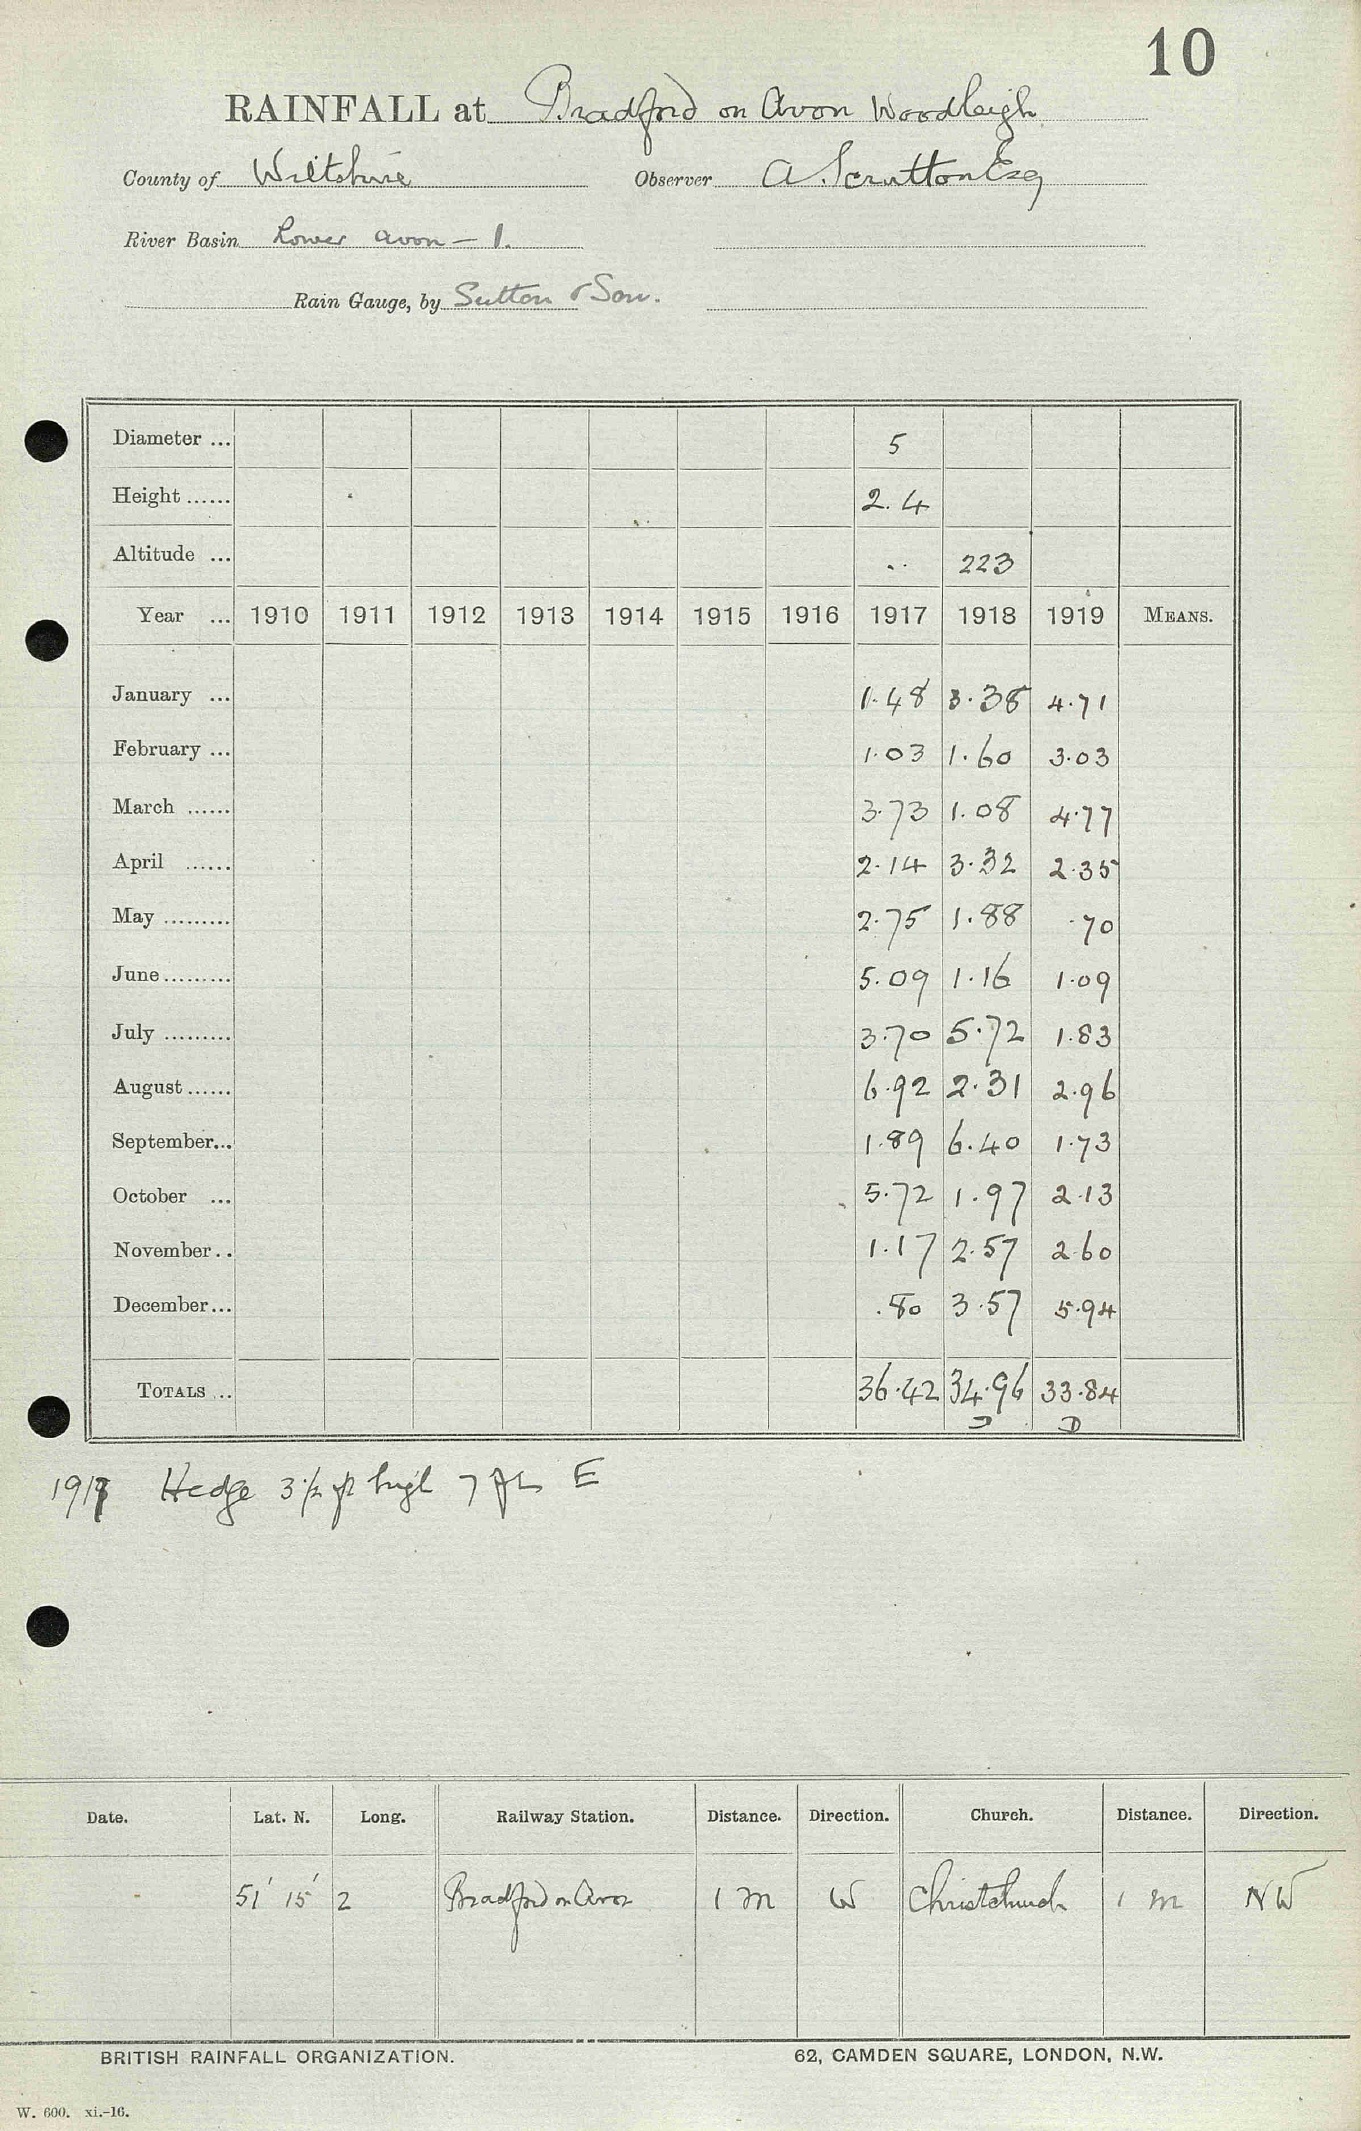 10
RAINFALL at Bradford on Avon Woodleigh
County of Wiltshire Observer A. Scrutton Esq
River Basin Lower Avon — 1.
Rain Gauge, by Sutton & Son.
Diameter ... 5
Height ...... 2.4
Altitude ... .. 223
Year ... 1910 1911 1912 1913 1914 1915 1916 1917 1918 1919 MEANS.
January ... 1.48 3.38 4.71
February ... 1.03 1.60 3.03
March ...... 3.73 1.08 4.77
April ...... 2.14 3.32 2.35
May ......... 2.75 1.88 .70
June ......... 5.09 1.16 1.09
July ......... 3.70 5.72 1.83
August ...... 6.92 2.31 2.96
September... 1.89 6.40 1.73
October ... 5.72 1.97 2.13
November.. 1.17 2.57 2.60
December... .80 3.57 5.94
TOTALS ... 36.42 34.96 33.84
D D
1917 Hedge 3½ ft high 7 ft E
Date. Lat. N. Long. Railway Station. Distance. Direction. Church. Distance. Direction.
51' 15' 2 Bradford on Avon 1 m W Christchurch 1 m NW
BRITISH RAINFALL ORGANIZATION. 62, CAMDEN SQUARE, LONDON, N.W.
W. 600. xi.-16.